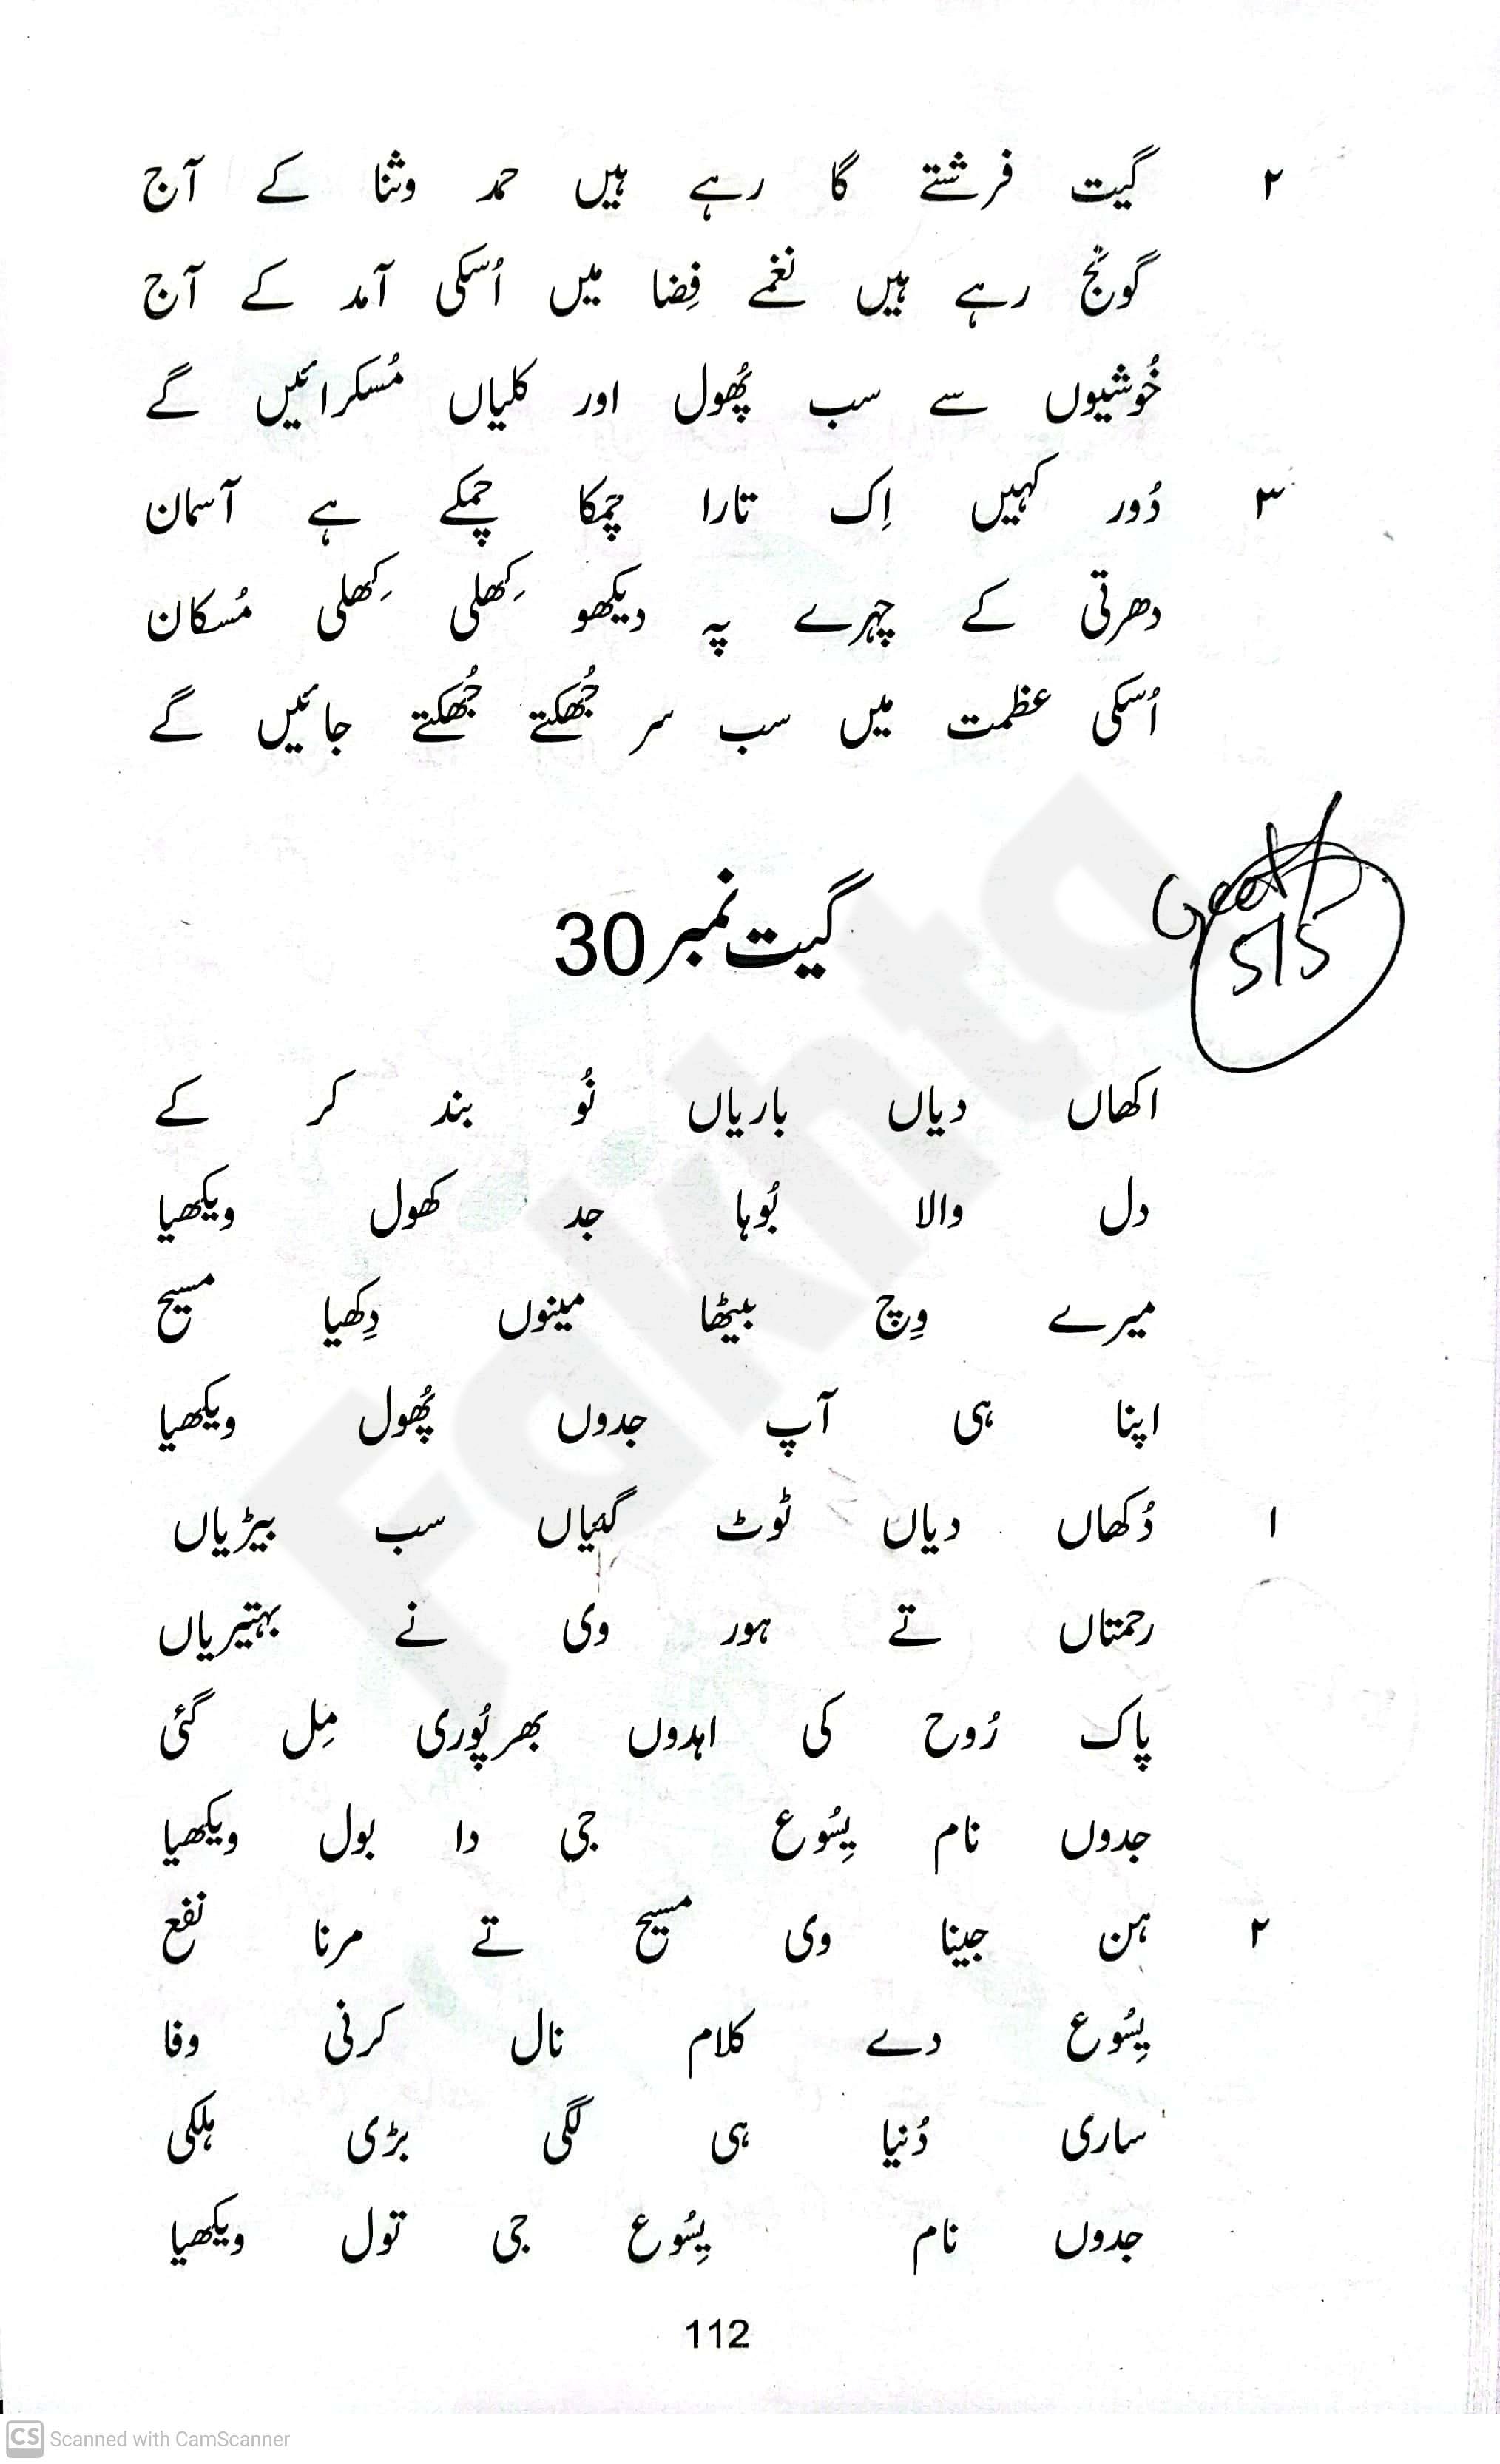 ۲ گیت فرشتے گا رہے ہیں حمد وثنا کے آج
گونج رہے ہیں نغمے فِضا میں اُسکی آمد کے آج
خُوشیوں سے سب پُھول اور کلیاں مُسکرائیں گے
۳ دُور کہیں اِک تارا چمکا چمکے ہے آسمان
دھرتی کے چہرے پہ دیکھو کِھلی کِھلی مُسکان
اُسکی عظمت میں سب سر جُھکتے جُھکتے جائیں گے
گیت نمبر 30
515
اکھاں دیاں باریاں نُو بند کر کے
دل والا بُوہا جد کھول ویکھیا
میرے وِچ بیٹھا مینوں دِکھیا مسیح
اپنا ہی آپ جدوں پُھول ویکھیا
۱ دُکھاں دیاں ٹوٹ گئیاں سب بیڑیاں
رحمتاں تے ہور وی نے بہتیریاں
پاک رُوح کی اہدوں بھرپُوری مِل گئی
جدوں نام یِسُوع جی دا بول ویکھیا
۲ ہن جینا وی مسیح تے مرنا نفع
یِسُوع دے کلام نال کرنی وفا
ساری دُنیا ہی لگی بڑی ہلکی
جدوں نام یِسُوع جی تول ویکھیا
112
Fakhta
CS Scanned with CamScanner